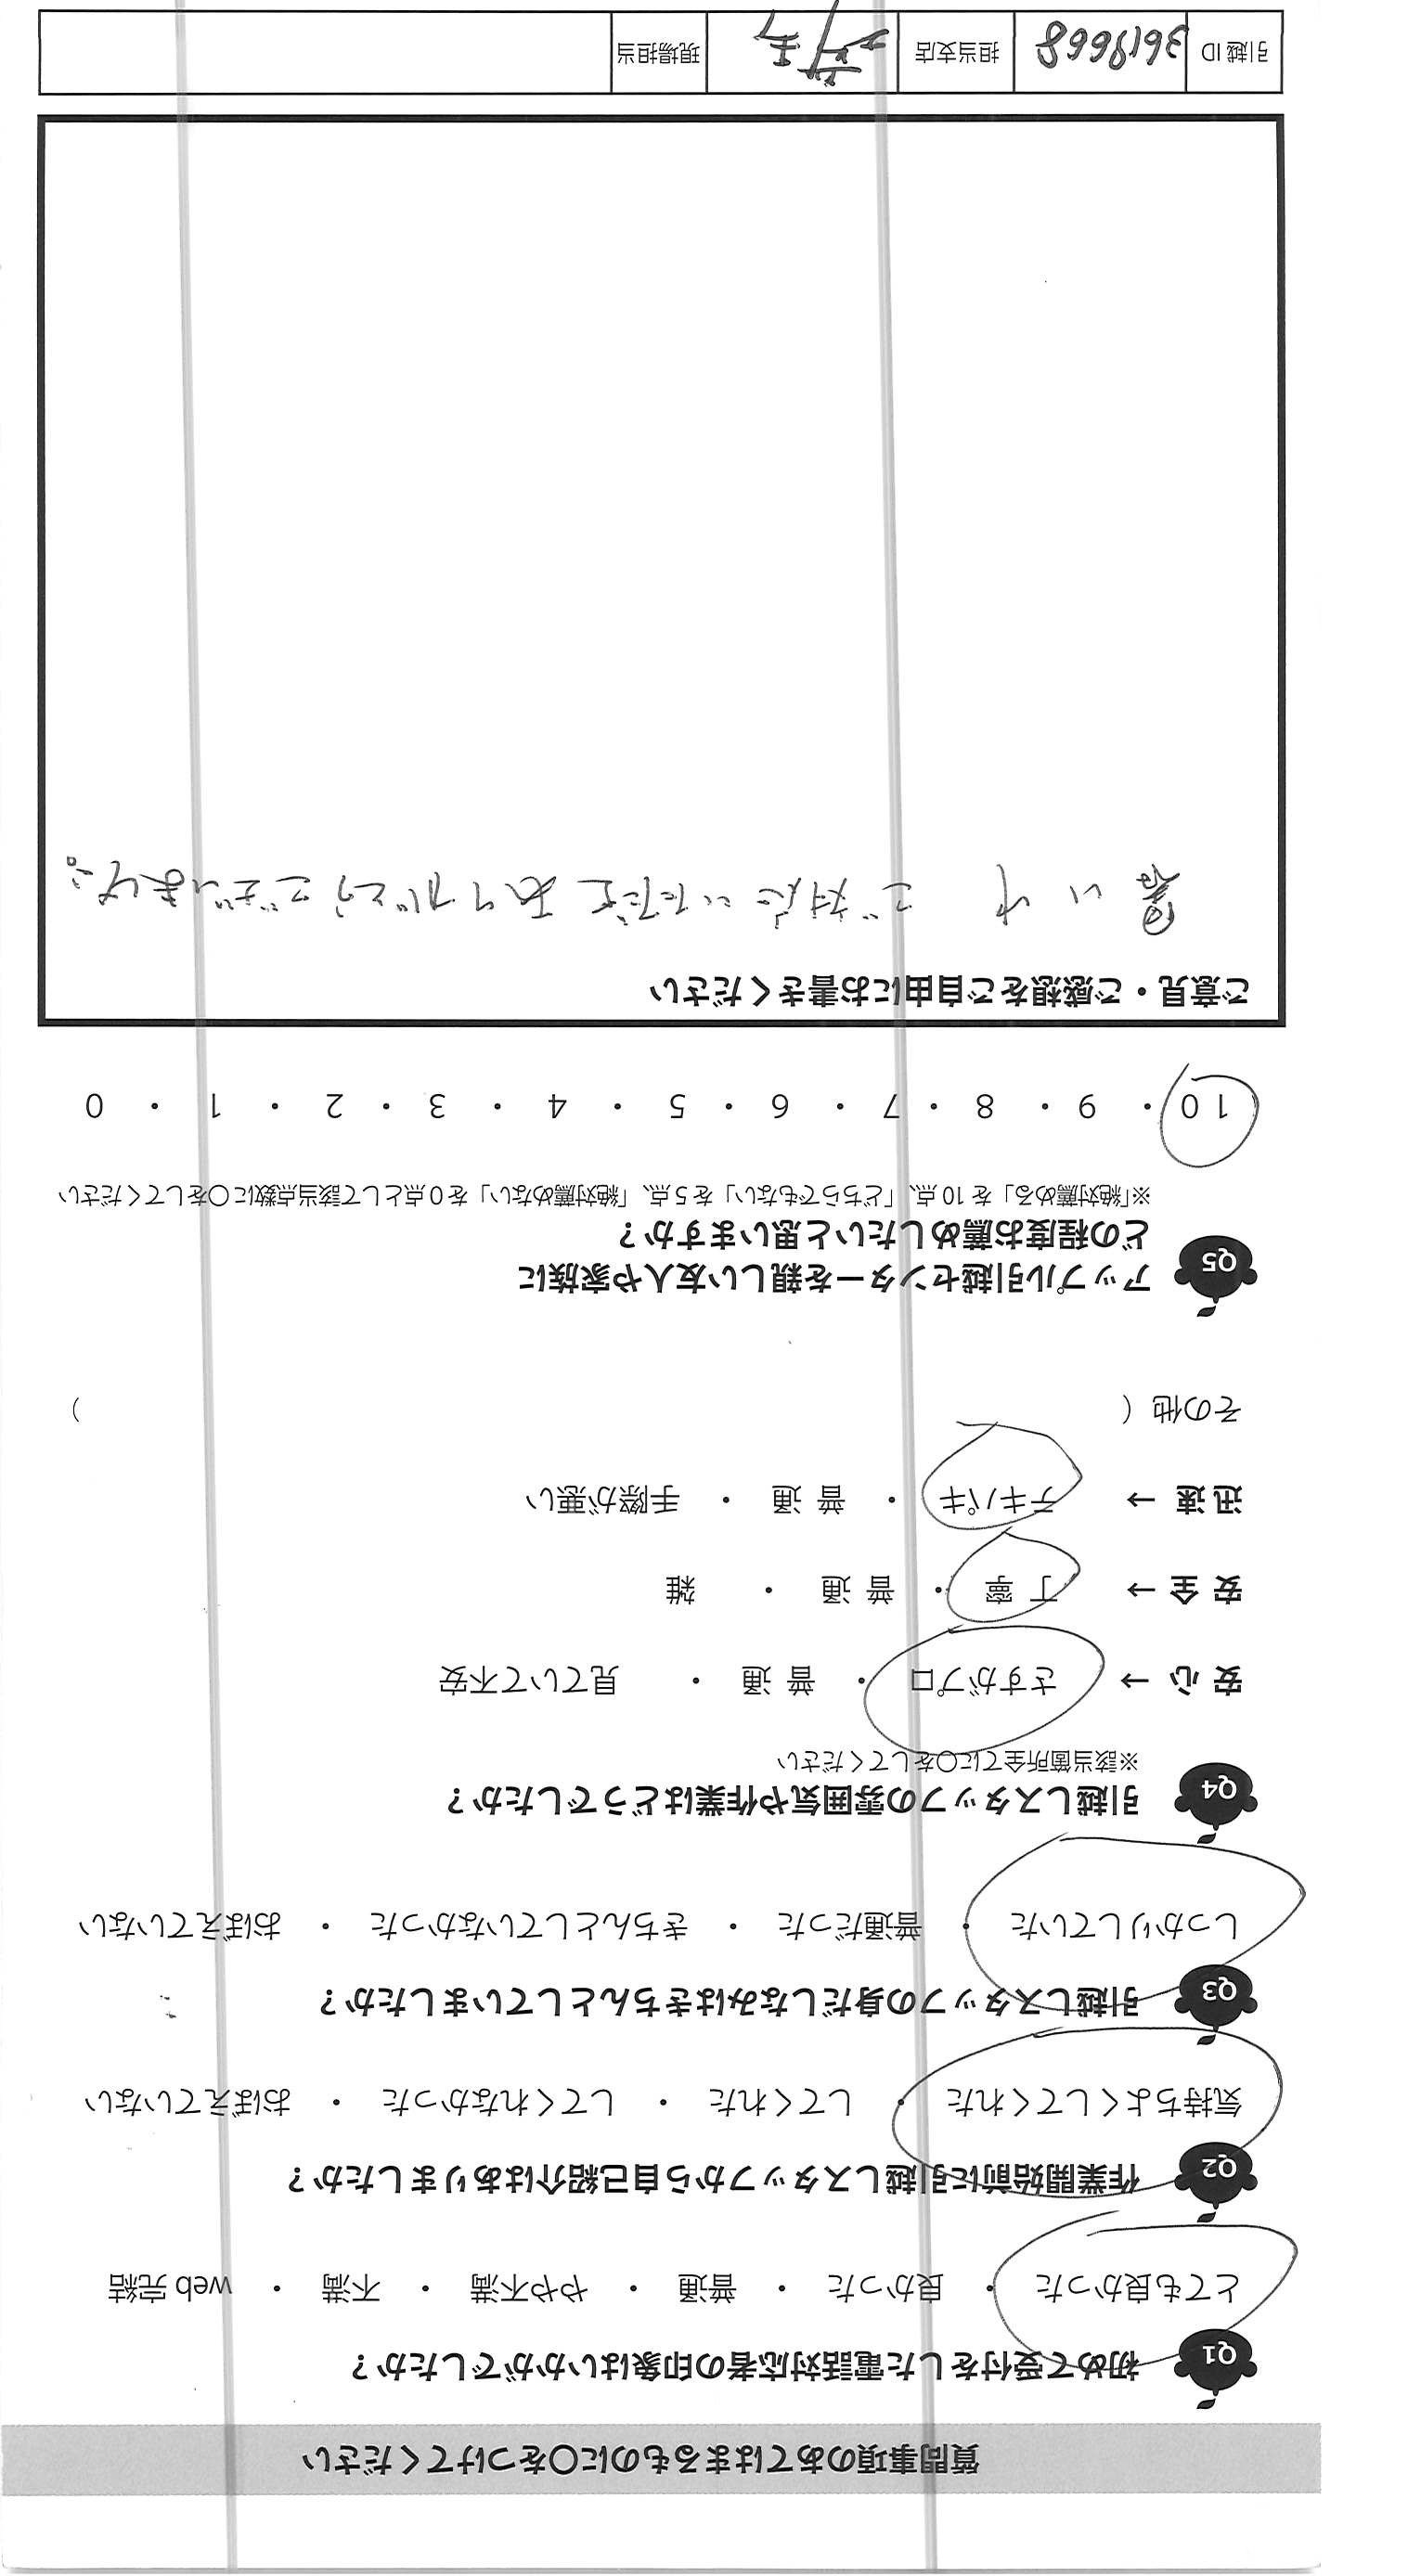 質問事項のあてはまるものに〇をつけてください
Q1 初めて受付をした電話対応者の印象はいかがでしたか？
とても良かった ・ 良かった ・ 普通 ・ やや不満 ・ 不満 ・ web 完結
Q2 作業開始前に引越しスタッフから自己紹介はありましたか？
気持ちよくしてくれた ・ してくれた ・ してくれなかった ・ おぼえていない
Q3 引越しスタッフの身だしなみはきちんとしていましたか？
しっかりしていた ・ 普通だった ・ きちんとしていなかった ・ おぼえていない
Q4 引越しスタッフの雰囲気や作業はどうでしたか？
※該当箇所全てに〇をしてください
安心 → さすがプロ ・ 普通 ・ 見ていて不安
安全 → 丁寧 ・ 普通 ・ 雑
迅速 → テキパキ ・ 普通 ・ 手際が悪い
その他（ ）
Q5 アップル引越センターを親しい友人や家族に
どの程度お薦めしたいと思いますか？
※「絶対薦める」を 10 点、「どちらでもない」を 5 点、「絶対薦めない」を 0 点として該当点数に〇をしてください
10 ・ 9 ・ 8 ・ 7 ・ 6 ・ 5 ・ 4 ・ 3 ・ 2 ・ 1 ・ 0
ご意見・ご感想をご自由にお書きください
暑い中 ご対応いただきありがとうございます。
引越 ID 3619668 担当支店 現場担当